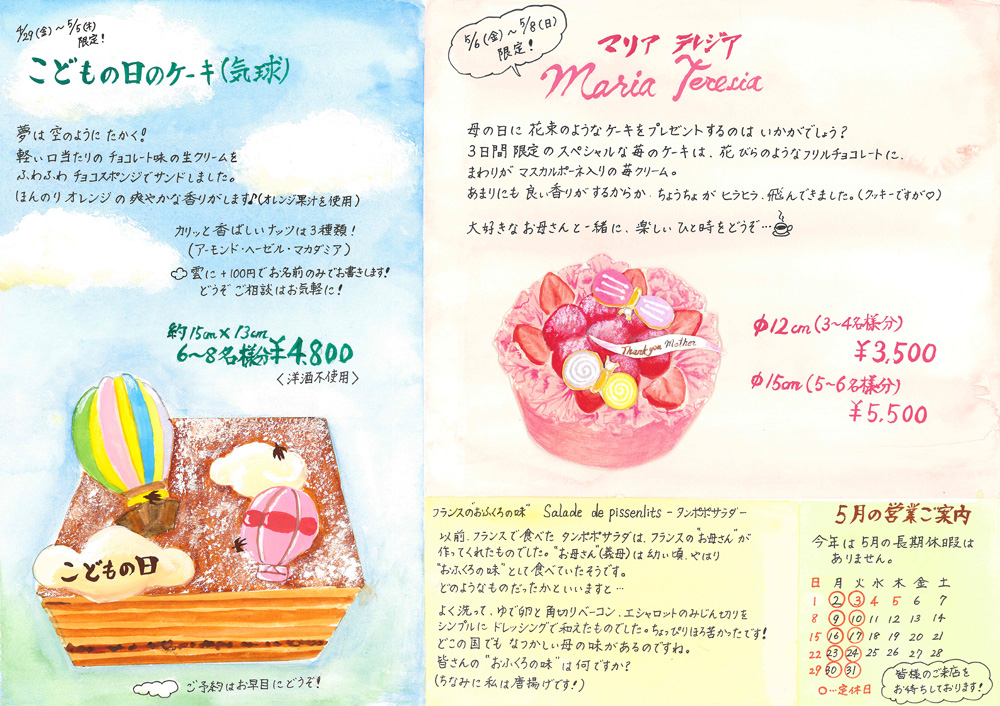 4/29(金)～5/5(木)
限定!
こどもの日のケーキ(気球)
夢は空のようにたかく!
軽い口当たりのチョコレート味の生クリームを
ふわふわチョコスポンジでサンドしました。
ほんのりオレンジの爽やかな香りがします♪(オレンジ果汁を使用)
カリッと香ばしいナッツは3種類!
(アーモンド・ヘーゼル・マカダミア)
雲に+100円でお名前のみでお書きします!
どうぞご相談はお気軽に!
約15cm×13cm
6～8名様分¥4,800
〈洋酒不使用〉
こどもの日
ご予約はお早目にどうぞ!
5/6(金)～5/8(日)
限定!
マリア テレジア
Maria Teresia
母の日に花束のようなケーキをプレゼントするのはいかがでしょう?
3日間限定のスペシャルな苺のケーキは、花びらのようなフリルチョコレートに、
まわりがマスカルポーネ入りの苺クリーム。
あまりにも良い香りがするからか、ちょうちょがヒラヒラ飛んできました。(クッキーですが♡)
大好きなお母さんと一緒に、楽しいひと時をどうぞ…
Thank you Mother
φ12cm(3～4名様分)
¥3,500
φ15cm(5～6名様分)
¥5,500
フランスの"おふくろの味" Salade de pissenlits -タンポポサラダ-
以前、フランスで食べたタンポポサラダは、フランスの"お母さん"が
作ってくれたものでした。"お母さん"(義母)は幼い頃、やはり
"おふくろの味"として食べていたそうです。
どのようなものだったかといいますと…
よく洗って、ゆで卵と角切りベーコン、エシャロットのみじん切りを
シンプルにドレッシングで和えたものでした。ちょっぴりほろ苦かったです!
どこの国でもなつかしい母の味があるのですね。
皆さんの"おふくろの味"は何ですか?
(ちなみに私は唐揚げです!)
5月の営業ご案内
今年は5月の長期休暇は
ありません。
日 月 火 水 木 金 土
1 2 3 4 5 6 7
8 9 10 11 12 13 14
15 16 17 18 19 20 21
22 23 24 25 26 27 28
29 30 31
○…定休日
皆様のご来店を
お待ちしております!